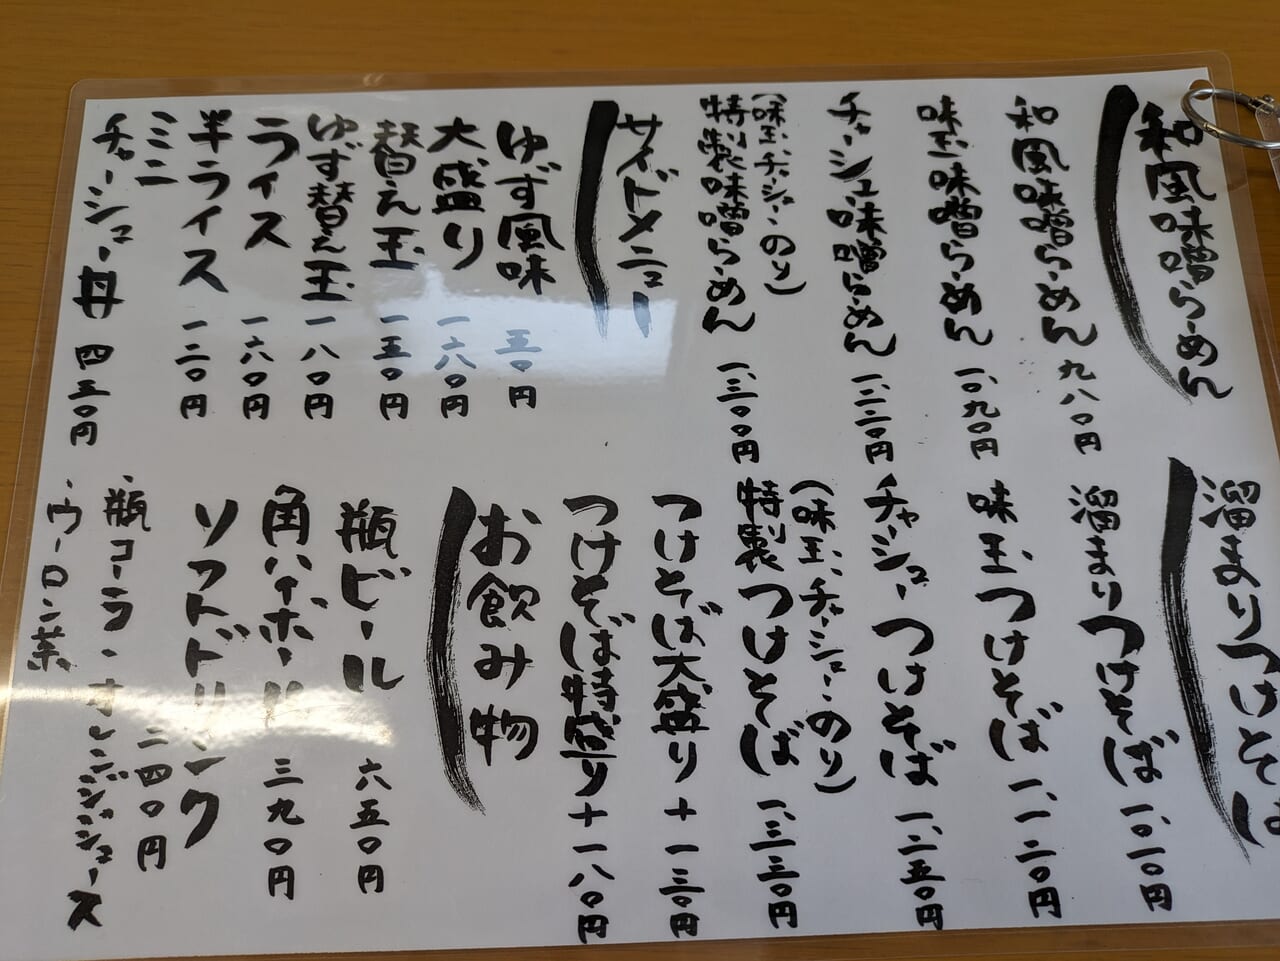 和風味噌らーめん
和風味噌らーめん 九八〇円
味玉味噌らーめん 一、〇九〇円
チャーシュー味噌らーめん 一、二二〇円
(味玉、チャーシュー、のり)
特製味噌らーめん 一、三〇〇円
サイドメニュー
ゆず風味 五〇円
大盛り 一六〇円
替え玉 一五〇円
ゆず替え玉 一八〇円
ライス 一六〇円
半ライス 一二〇円
ミニ
チャーシュー丼 四五〇円
溜まりつけそば
溜まりつけそば 一、〇一〇円
味玉つけそば 一、一二〇円
チャーシューつけそば 一、二五〇円
(味玉、チャーシュー、のり)
特製つけそば 一、三三〇円
つけそば大盛り+一三〇円
つけそば特盛り+一八〇円
お飲み物
瓶ビール 六五〇円
角ハイボール 三九〇円
ソフトドリンク
二四〇円
・瓶コーラ・オレンジジュース
・ウーロン茶